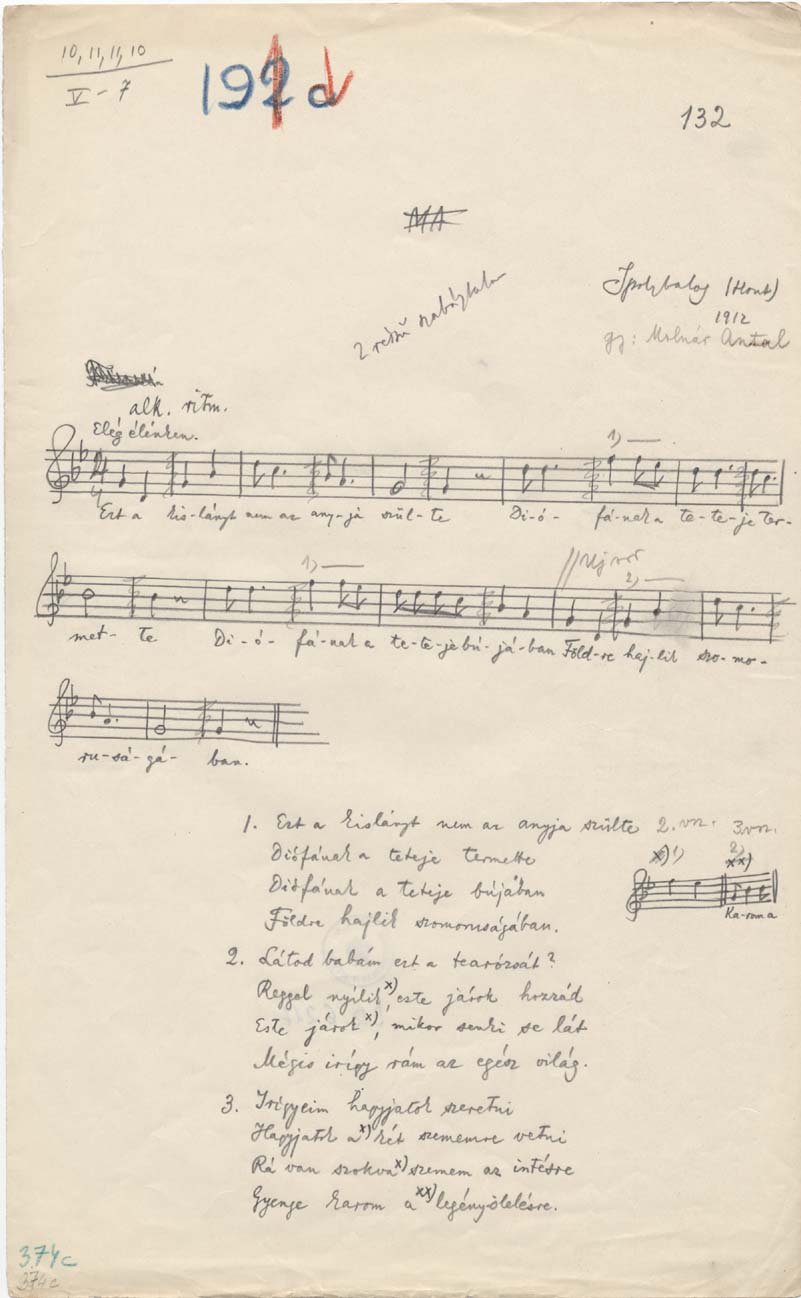 10, 11, 11, 10
V - 7
192 d
132
MA
Ipolybalog (Hont)
1912
gy: Molnár Antal
2 retsű
alk. ritm.
Elég élénken.
1)
Ezt a kis-lányt nem az any-ja szül-te Di-ó- fá-nak a te-te-je ter-
1)
Új vsz
2)
met- te Di-ó- fá-nak a te-te-je bú-já-ban Föld-re haj-lik szo-mo-
ru-sá-gá- ban.
1. Ezt a kislányt nem az anyja szülte
Diófának a teteje termette
Diófának a teteje bújában
Földre hajlik szomoruságában.
2. vsz. 3. vsz.
x) 1) 2) xx)
Ka-rom a
2. Látod babám ezt a tearózsát?
Reggel nyílik x), este járok hozzád
Este járok x), mikor senki se lát
Mégis irígy rám az egész világ.
3. Irígyeim hagyjatok szeretni
Hagyjatok a x) két szememre vetni
Rá van szokva x) szemem az intésre
Gyenge karom a xx) legényölelésre.
374c
374c